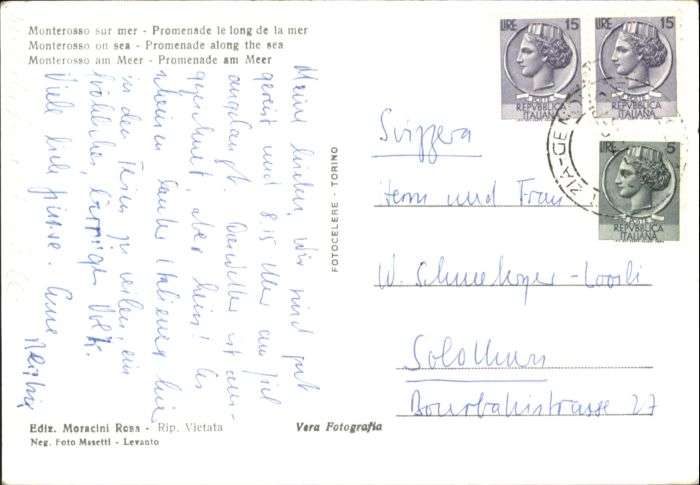 Monterosso sur mer - Promenade le long de la mer
Monterosso on sea - Promenade along the sea
Monterosso am Meer - Promenade am Meer
Meine Lieben, Wir sind gut
gereist und 8.15 Uhr am Ziel
angelangt. Das Wetter ist
aber kein!
scheinen Italiener hier
in den Ferien zu weilen, ein
fröhliches, Volk.
Viele liebe Grüsse. Eure
FOTOCELERE - TORINO
LIRE 15
POSTE
REPVBBLICA
ITALIANA
LIRE 15
POSTE
REPVBBLICA
ITALIANA
LIRE 5
POSTE
REPVBBLICA
ITALIANA
Svizzera
Herrn und Frau
Solothurn
Bourbakistrasse 27
Ediz. Moracini Rosa - Rip. Vietata
Neg. Foto Masetti - Levanto
Vera Fotografia